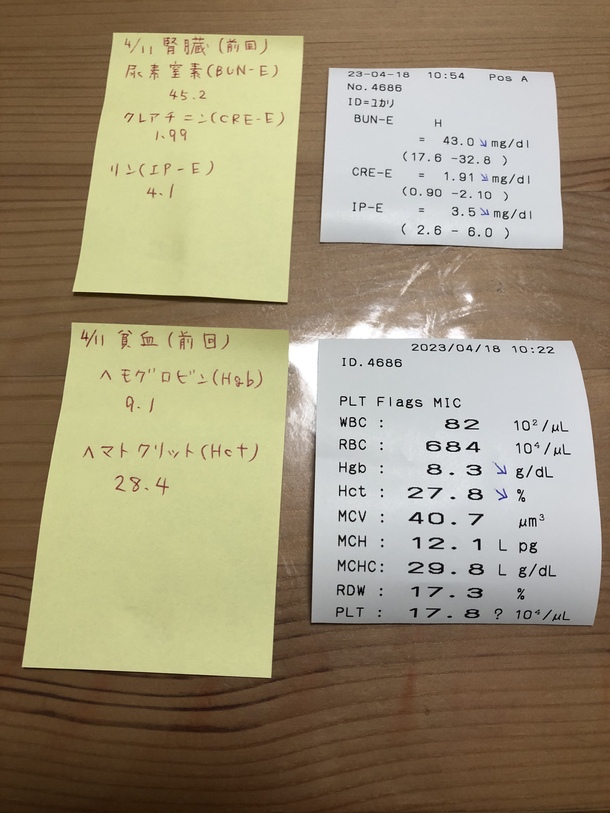 4/11 腎臓 (前回)
尿素窒素(BUN-E)
45.2
クレアチニン(CRE-E)
1.99
リン(IP-E)
4.1
23-04-18 10:54 Pos A
No.4686
ID=ユカリ
BUN-E H
= 43.0↘mg/dl
(17.6 -32.8 )
CRE-E = 1.91↘mg/dl
(0.90 -2.10 )
IP-E = 3.5↘mg/dl
( 2.6 - 6.0 )
4/11 貧血 (前回)
ヘモグロビン(Hgb)
9.1
ヘマトクリット(Hct)
28.4
2023/04/18 10:22
ID.4686
PLT Flags MIC
WBC : 82 10²/μL
RBC : 684 10⁴/μL
Hgb : 8.3 ↘ g/dL
Hct : 27.8 ↘ %
MCV : 40.7 μm³
MCH : 12.1 L pg
MCHC: 29.8 L g/dL
RDW : 17.3 %
PLT : 17.8 ? 10⁴/μL